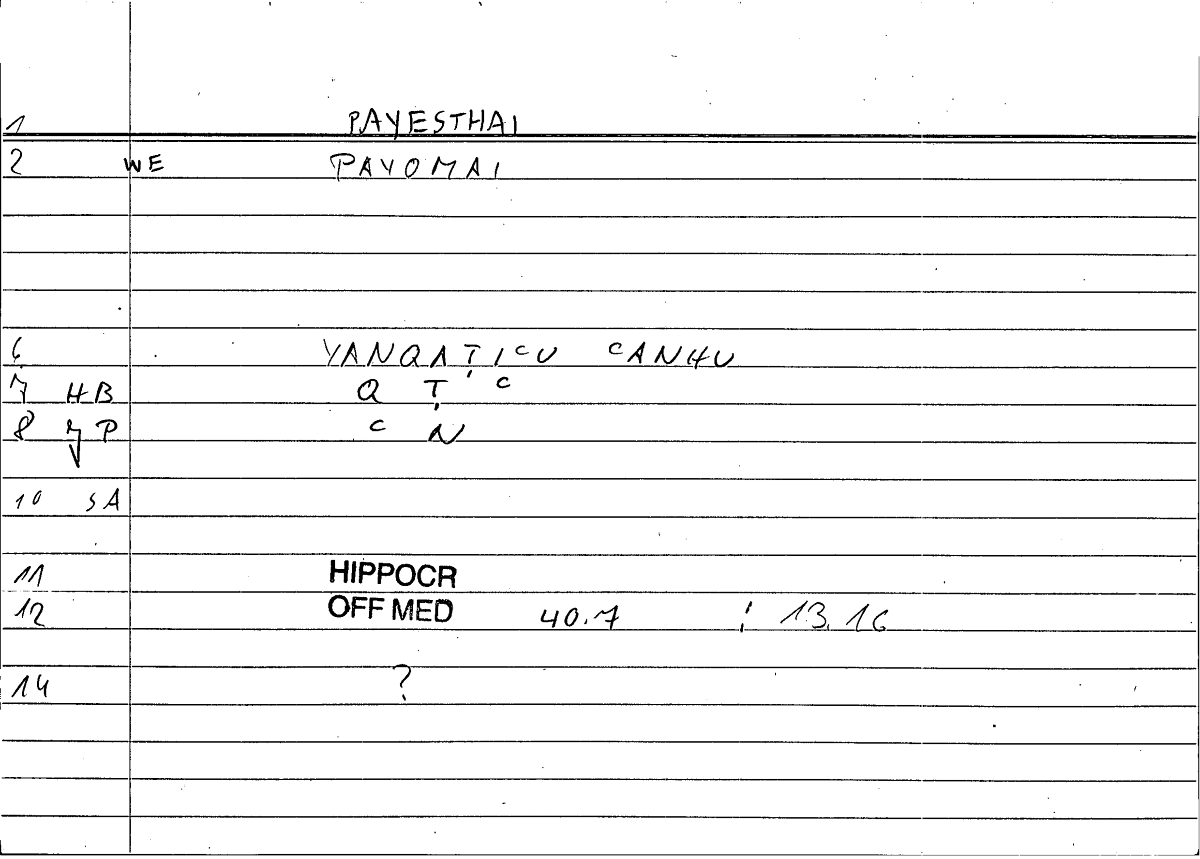 1 PAYESTHAI
2 WE PAYOMAI
6 YANQAṬIᶜU ᶜANHU
7 HB Q Ṭ ᶜ
8 P ᶜ Ṇ
10 SA
11 HIPPOCR
12 OFF MED 40.7 ; 13.16
14 ?